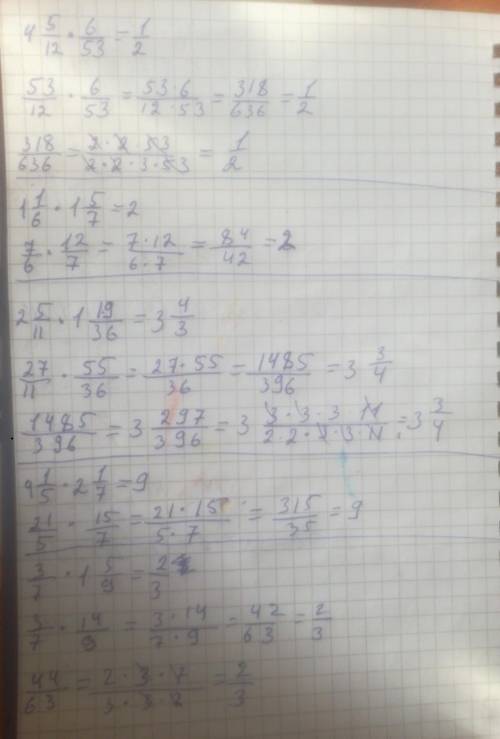 4 5/12 · 6/53 = 1/2
53/12 · 6/53 = 53·6/12·53 = 318/636 = 1/2
318/636 = 2·2·53/2·2·3·53 = 1/2
1 1/6 · 1 5/7 = 2
7/6 · 12/7 = 7·12/6·7 = 84/42 = 2
2 5/11 · 1 19/36 = 3 4/3
27/11 · 55/36 = 27·55/36 = 1485/396 = 3 3/4
1485/396 = 3 297/396 = 3 3·3·3·11/2·2·3·3·11 = 3 3/4
4 1/5 · 2 1/7 = 9
21/5 · 15/7 = 21·15/5·7 = 315/35 = 9
3/7 · 1 5/9 = 2/3
3/7 · 14/9 = 3·14/7·9 = 42/63 = 2/3
44/63 = 2·3·7/3·3·7 = 2/3